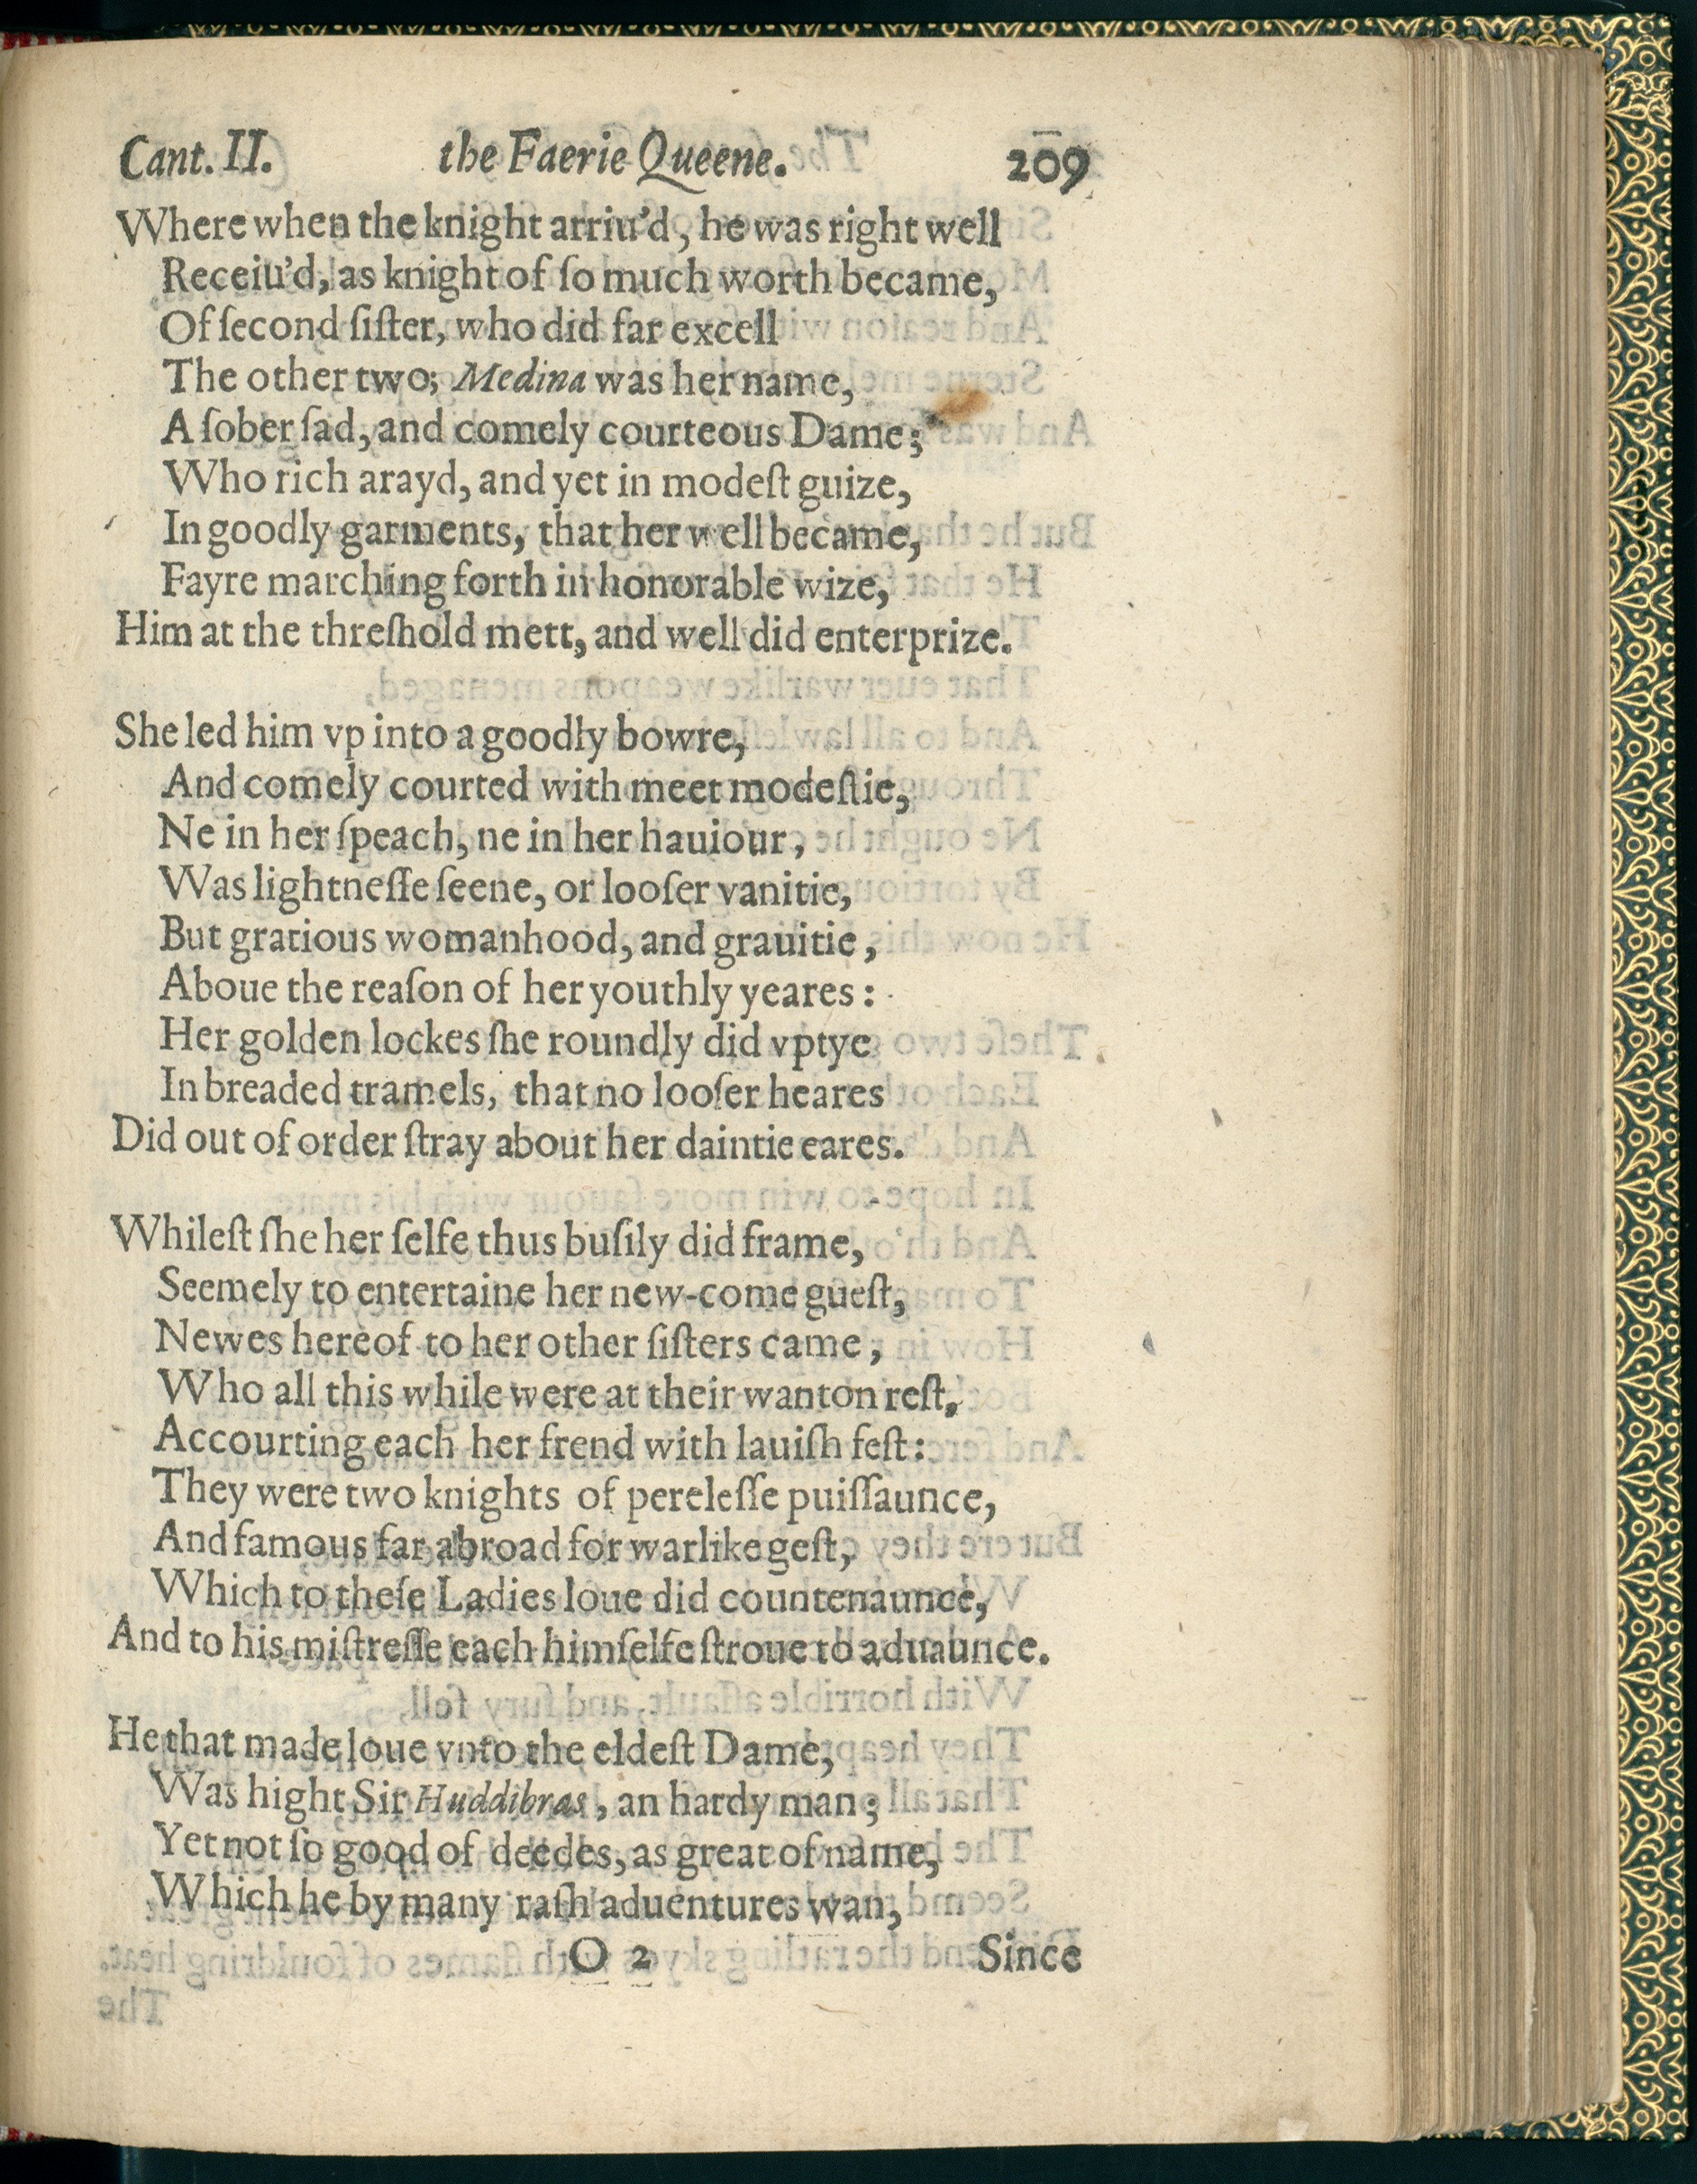 Cant. II. the Faerie Queene. 209
Where when the knight arriu'd, he was right well
Receiu'd, as knight of ſo much worth became,
Of ſecond ſiſter, who did far excell
The other two; Medina was her name,
A ſober ſad, and comely courteous Dame;
Who rich arayd, and yet in modeſt guize,
In goodly garments, that her well became,
Fayre marching forth in honorable wize,
Him at the threſhold mett, and well did enterprize.
She led him vp into a goodly bowre,
And comely courted with meet modeſtie,
Ne in her ſpeach, ne in her hauiour,
Was lightneſſe ſeene, or looſer vanitie,
But gratious womanhood, and grauitie,
Aboue the reaſon of her youthly yeares:
Her golden lockes ſhe roundly did vptye
In breaded tramels, that no looſer heares
Did out of order ſtray about her daintie eares.
Whileſt ſhe her ſelfe thus buſily did frame,
Seemely to entertaine her new-come gueſt,
Newes hereof to her other ſiſters came,
Who all this while were at their wanton reſt,
Accourting each her frend with lauiſh feſt:
They were two knights of pereleſſe puiſſaunce,
And famous far abroad for warlike geſt,
Which to theſe Ladies loue did countenaunce,
And to his miſtreſſe each himſelfe ſtroue to aduaunce.
He that made loue vnto the eldeſt Dame,
Was hight Sir Huddibras, an hardy man;
Yet not ſo good of deedes, as great of name,
Which he by many raſh aduentures wan,
O 2 Since